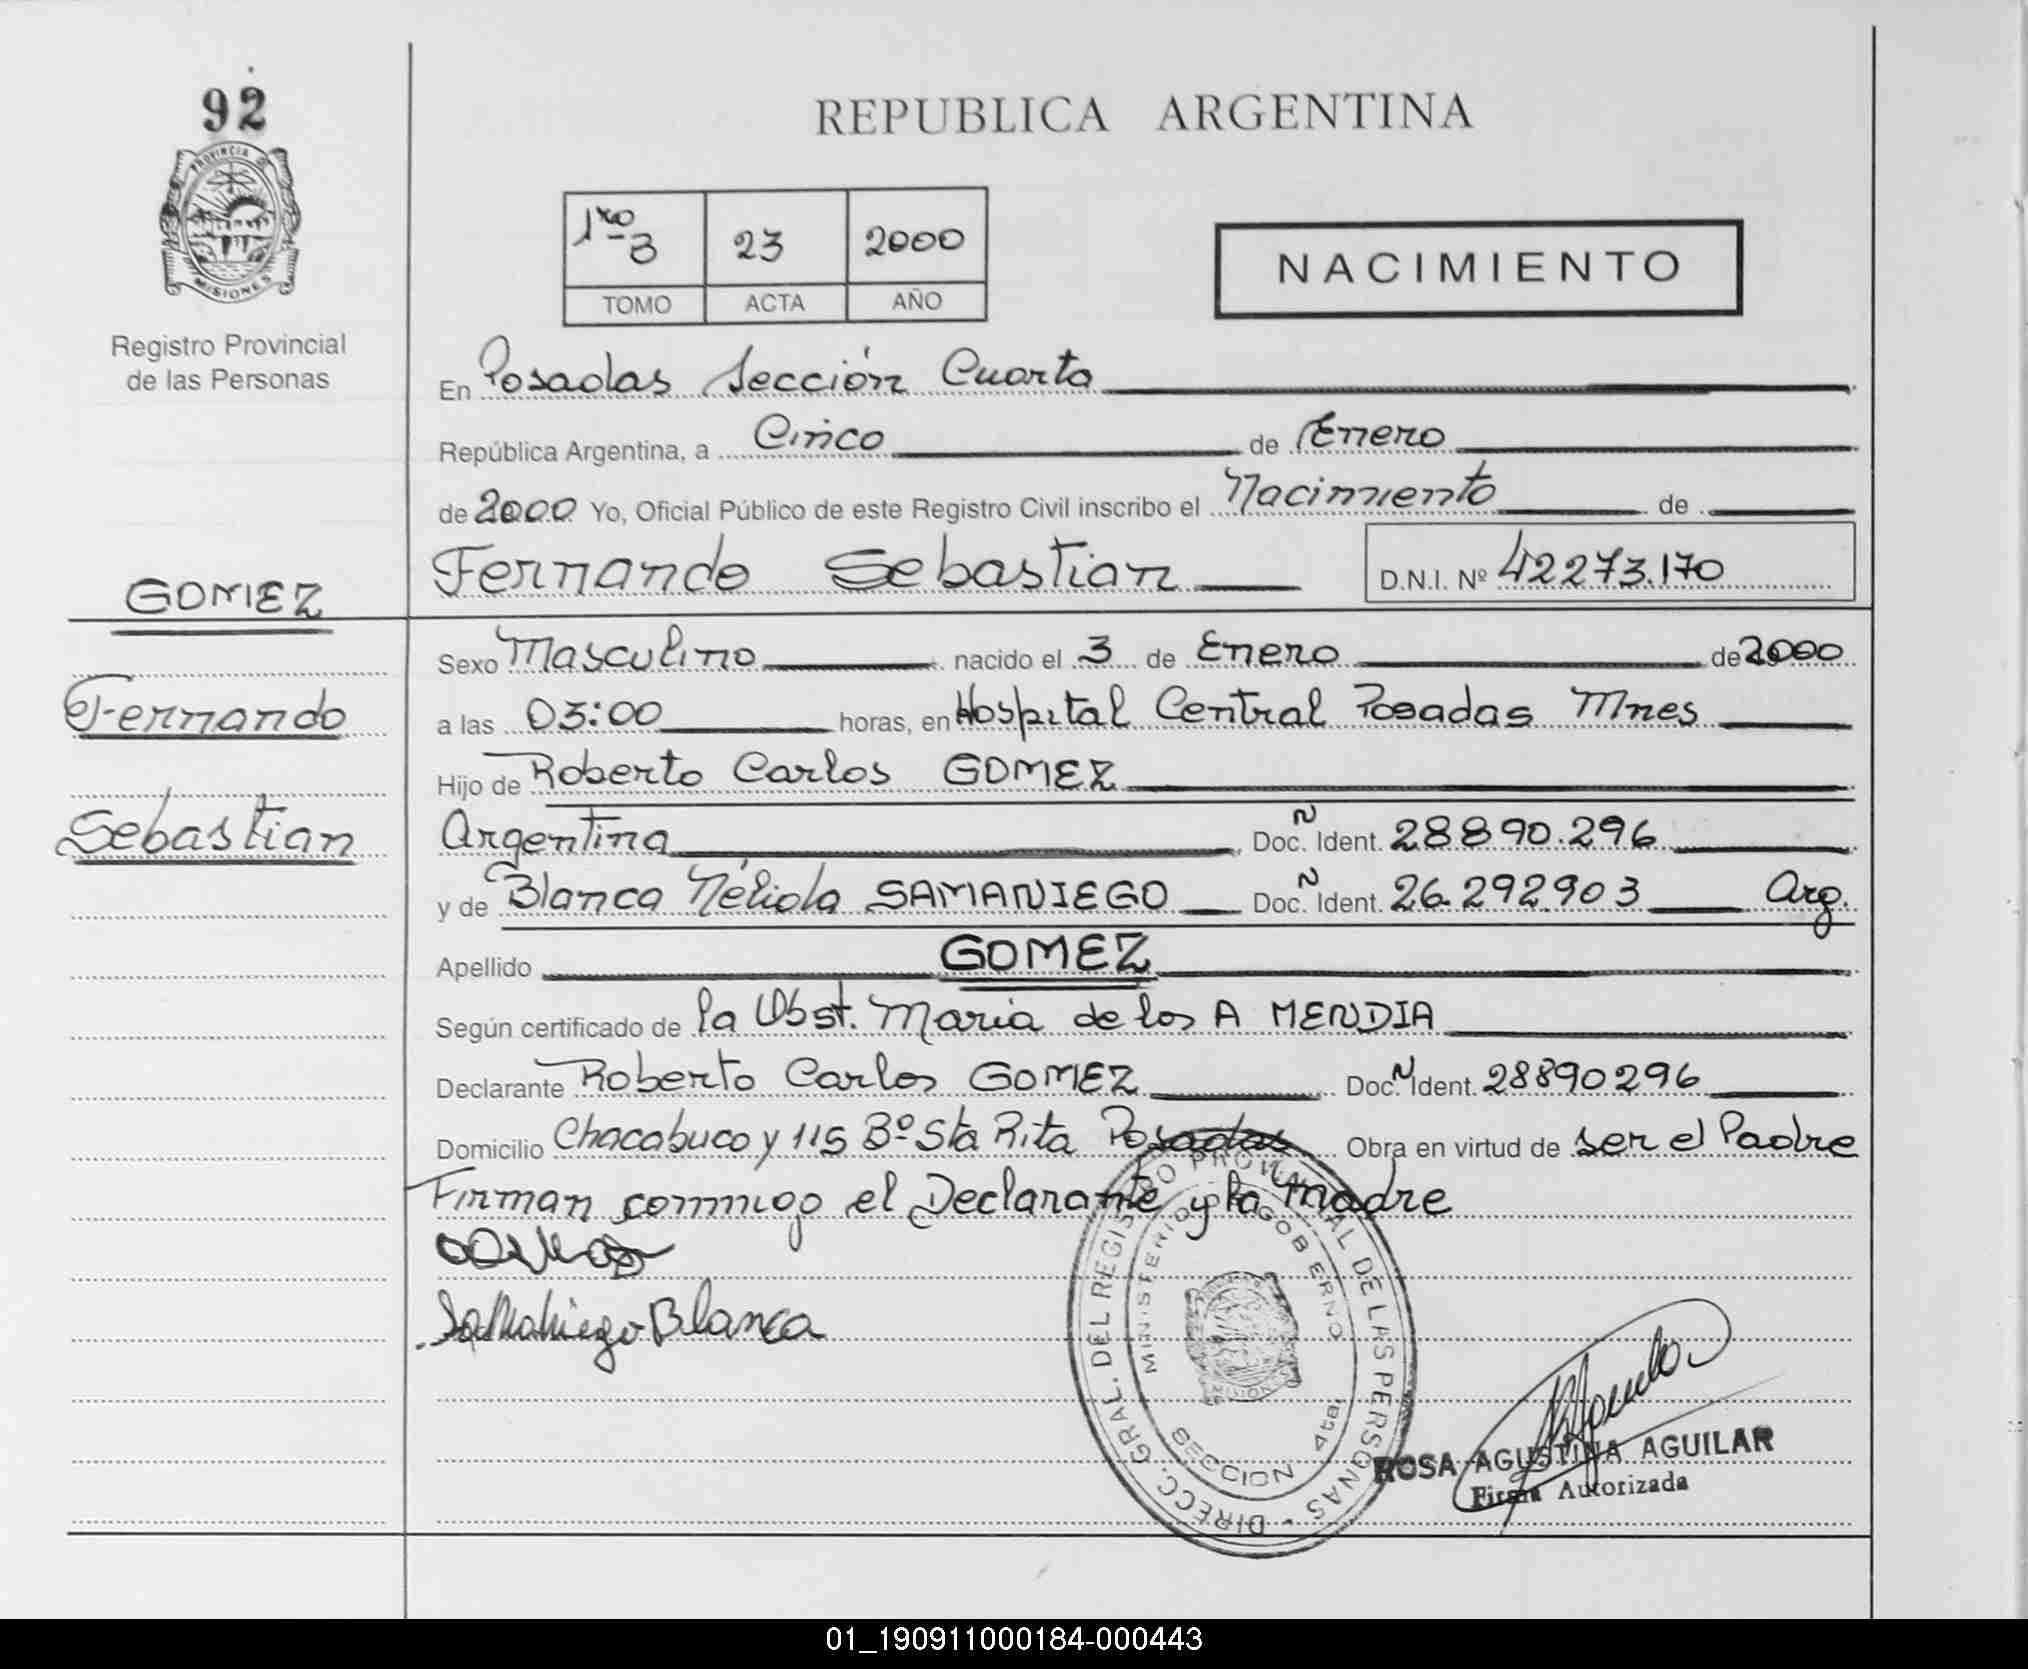 92
PROVINCIA DE
MISIONES
Registro Provincial
de las Personas
GOMEZ
Fernando
Sebastian
REPUBLICA ARGENTINA
1ro B 23 2000
TOMO ACTA AÑO
NACIMIENTO
En Posadas Sección Cuarta
República Argentina, a Cinco de Enero
de 2000 Yo, Oficial Público de este Registro Civil inscribo el Nacimiento de
Fernando Sebastian D.N.I. Nº 42273.170
Sexo Masculino nacido el 3 de Enero de 2000
a las 03:00 horas, en Hospital Central Posadas Mnes
Hijo de Roberto Carlos GOMEZ
Argentina Doc. Ident. 28890.296
y de Blanca Nélida SAMANIEGO Doc. Ident. 26.292.903 Arg.
Apellido GOMEZ
Según certificado de la Obst. Maria de los A MENDIA
Declarante Roberto Carlos GOMEZ Doc. Ident. 28890296
Domicilio Chacabuco y 115 Bº Sta Rita Posadas Obra en virtud de ser el Padre
Firman conmigo el Declarante y la madre
Samaniego Blanca
DIRECC. GRAL. DEL REGISTRO PROVINCIAL DE LAS PERSONAS
MINISTERIO DE GOBIERNO
SECCION 4ta.
ROSA AGUSTINA AGUILAR
Firma Autorizada
01_190911000184-000443